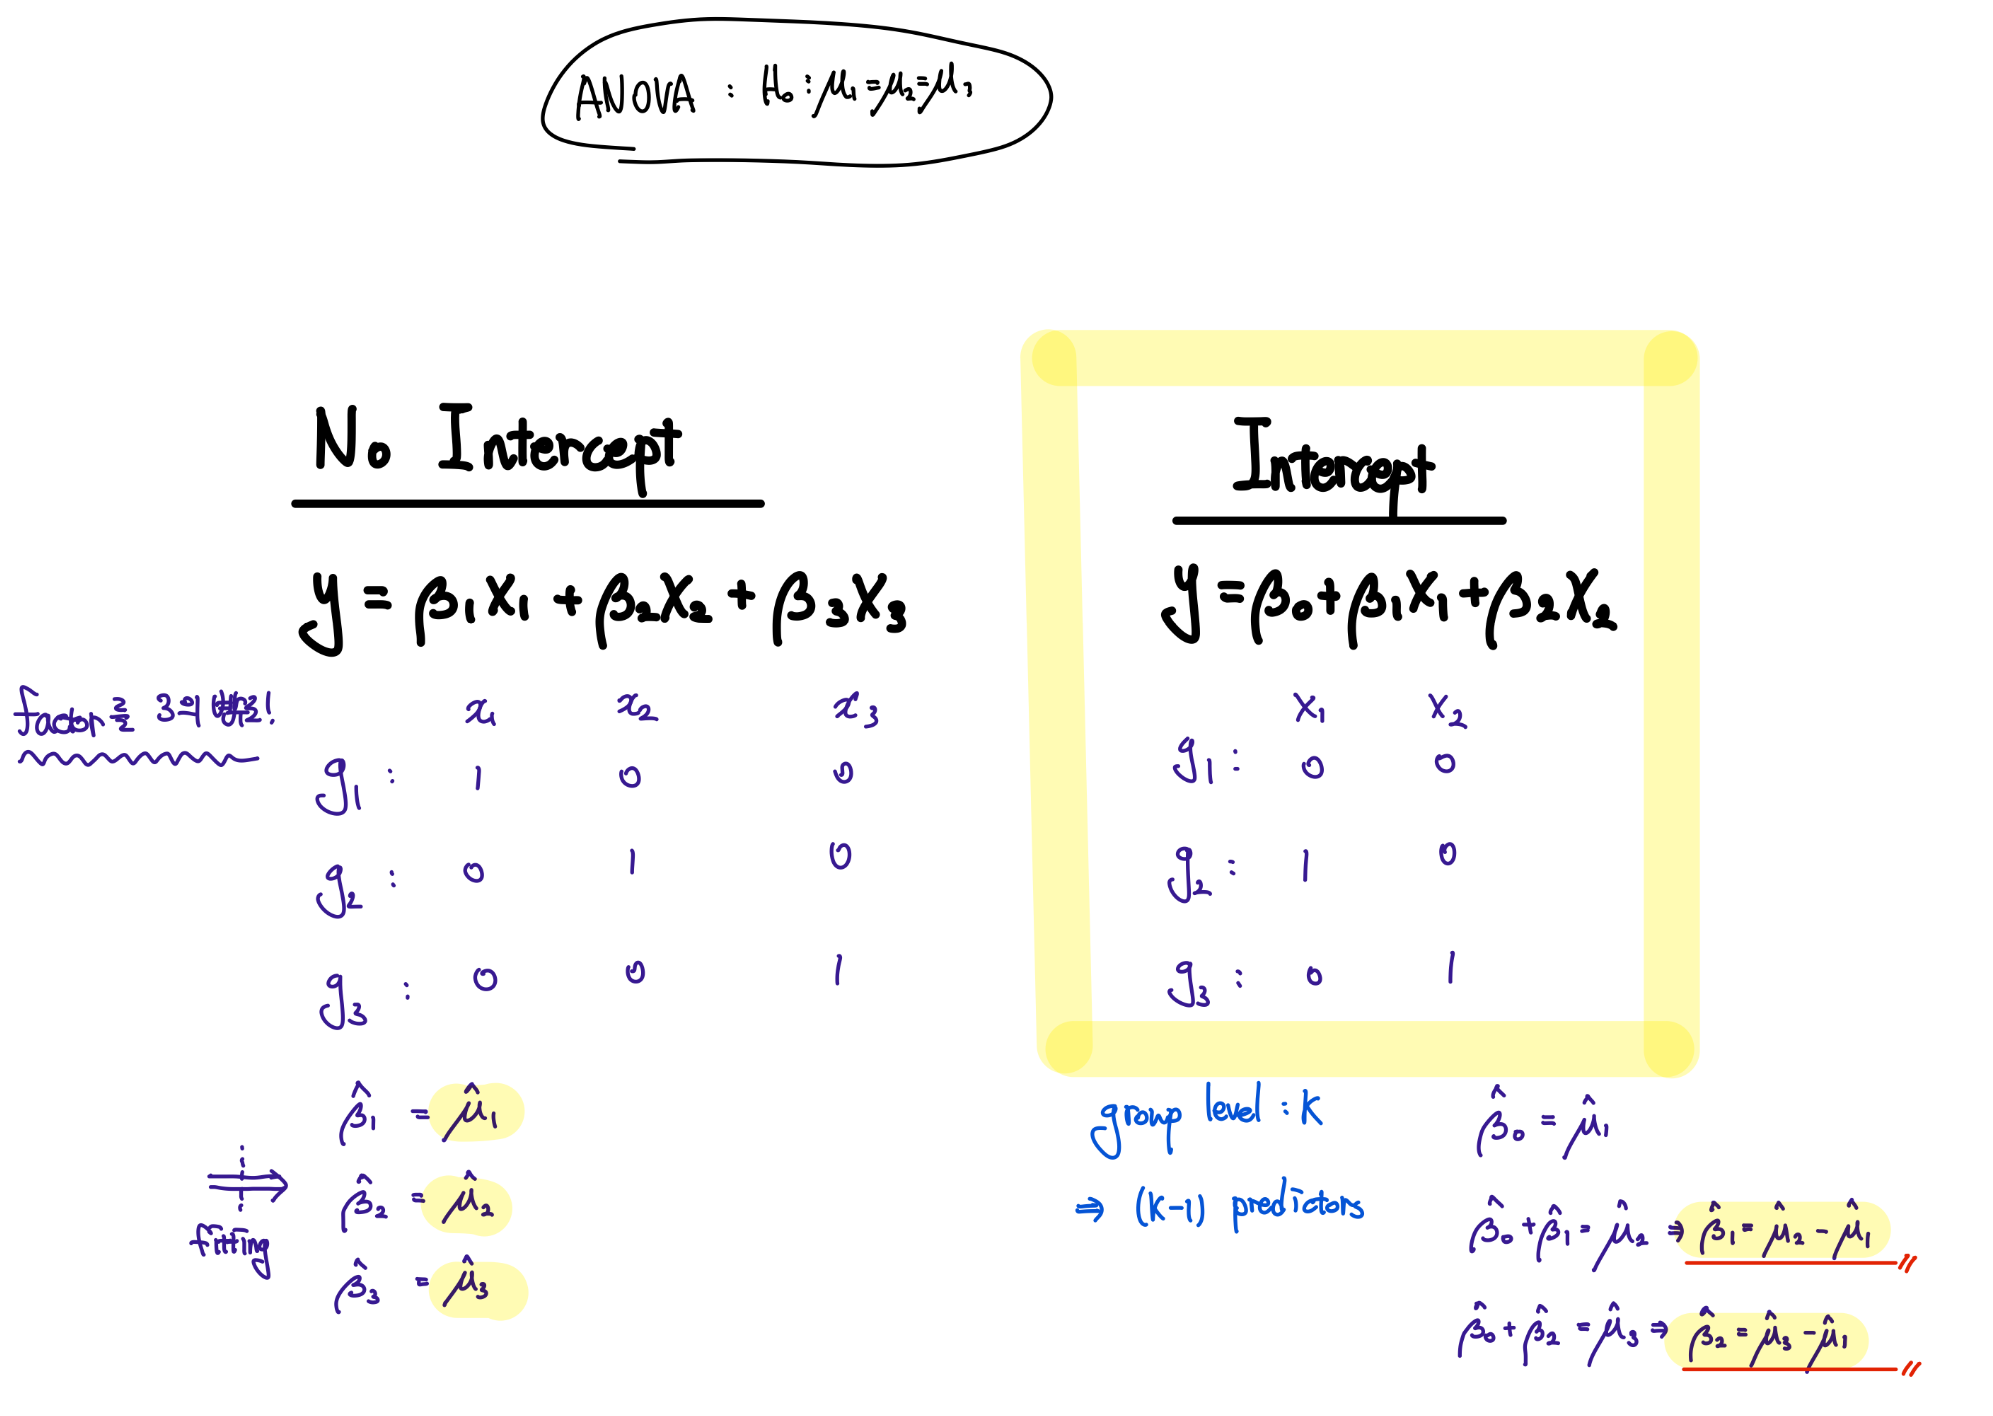 ANOVA : H₀ : μ₁=μ₂=μ₃
No Intercept
y = β₁X₁ + β₂X₂ + β₃X₃
factor를 3의
x₁ x₂ x₃
g₁ : 1 0 0
g₂ : 0 1 0
g₃ : 0 0 1
⇒ fitting
β̂₁ = μ̂₁
β̂₂ = μ̂₂
β̂₃ = μ̂₃
Intercept
y = β₀+β₁X₁+β₂X₂
X₁ X₂
g₁ : 0 0
g₂ : 1 0
g₃ : 0 1
group level : K
⇒ (K-1) predictors
β̂₀ = μ̂₁
β̂₀+β̂₁ = μ̂₂ ⇒ β̂₁ = μ̂₂ - μ̂₁
β̂₀+β̂₂ = μ̂₃ ⇒ β̂₂ = μ̂₃ - μ̂₁